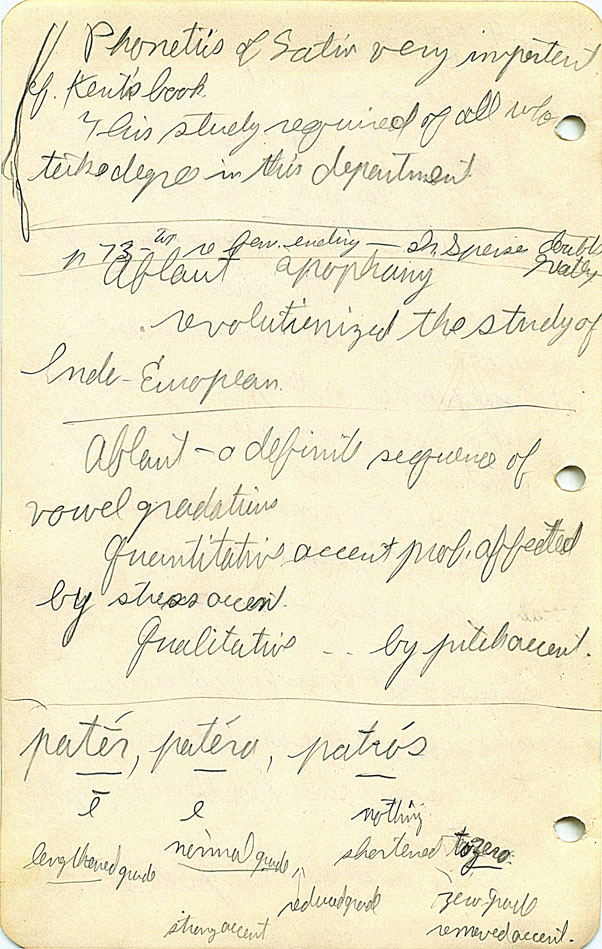 Phonetiis of Latin very important
cf. Kent's book
This study required of all who
take degree in this department
p 73 - re fem. ending — double
Ablaut apophany
revolutionized the study of
Indo-European
Ablaut - a definite sequence of
vowel gradations
Quantitative accent prob. affected
by stress accent.
Qualitative .. by pitch accent.
patér, patéra, patrós
ē e nothing
shortened to zero.
lengthened grade normal grade,
reduced grade zero-grade
strong accent removed accent.